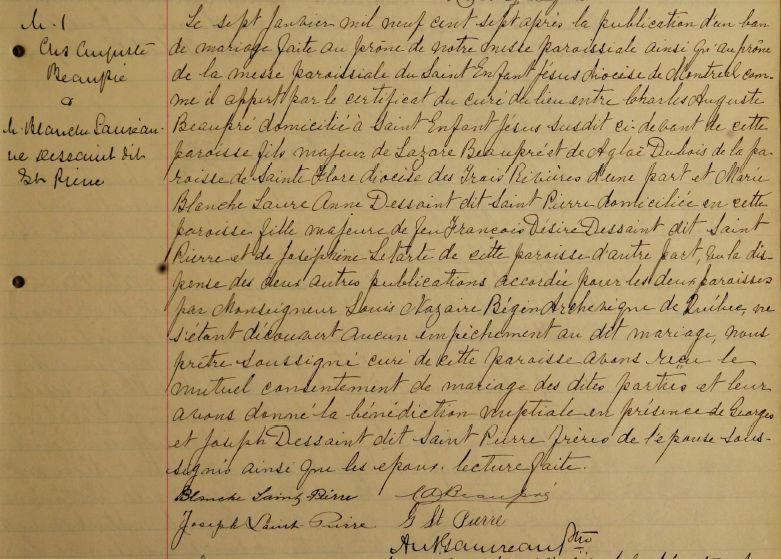 M. 1
Chs Auguste
Beaupré
&
M. Blanche Lauréan-
ne Dessaint dit
St Pierre
Le sept Janvier mil neuf cent sept après la publication d'un ban
de mariage faite au prône de notre messe paroissiale ainsi qu'au prône
de la messe paroissiale du Saint Enfant Jésus diocèse de Montréal com-
me il appert par le certificat du curé du lieu entre Charles Auguste
Beaupré domicilié à Saint Enfant Jésus susdit ci-devant de cette
paroisse fils majeur de Lazare Beaupré et de Aglaë Dubois de la pa-
roisse de Sainte Flore diocèse des Trois Rivières d'une part et Marie
Blanche Laure Anne Dessaint dit Saint Pierre domiciliée en cette
paroisse fille majeure de feu François Désiré Dessaint dit Saint
Pierre et de Joséphine Letarte de cette paroisse d'autre part, vu la dis-
pense des deux autres publications accordée pour les deux paroisses
par Monseigneur Louis Nazaire Bégin Archevêque de Québec, ne
s'étant découvert aucun empêchement au dit mariage, nous
prêtre soussigné curé de cette paroisse avons reçu le
mutuel consentement de mariage des dites parties et leur
avons donné la bénédiction nuptiale en présence de Georges
et Joseph Dessaint dit Saint Pierre frères de l'épouse sous-
signés ainsi que les époux. lecture faite.
Blanche Saint Pierre C A Beaupré
Joseph Saint-Pierre G St Pierre
Ptre